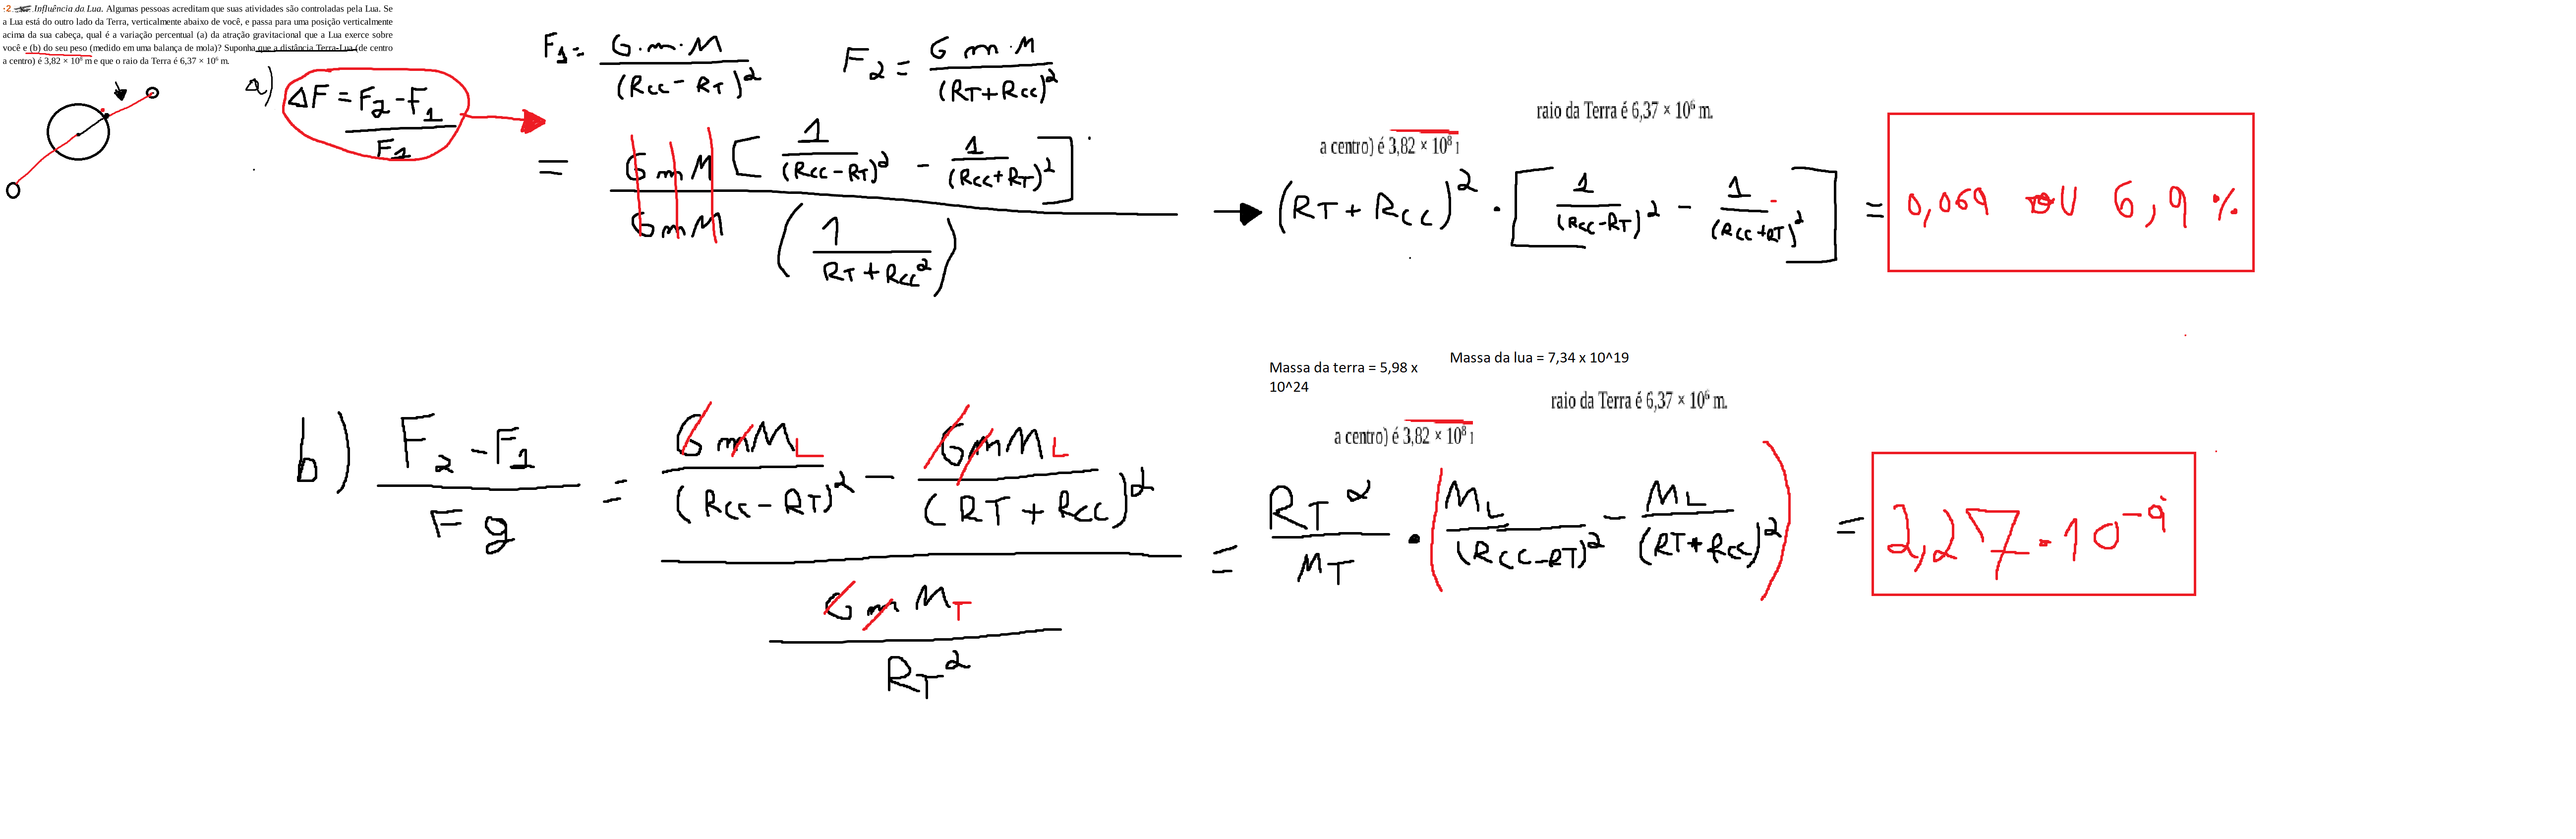 -2. Influência da Lua. Algumas pessoas acreditam que suas atividades são controladas pela Lua. Se
a Lua está do outro lado da Terra, verticalmente abaixo de você, e passa para uma posição verticalmente
acima da sua cabeça, qual é a variação percentual (a) da atração gravitacional que a Lua exerce sobre
você e (b) do seu peso (medido em uma balança de mola)? Suponha que a distância Terra-Lua (de centro
a centro) é 3,82 × 10⁸ m e que o raio da Terra é 6,37 × 10⁶ m.
a) ΔF = F2 - F1 / F1
F1 = G.m.M / (Rcc - RT)²
F2 = G m.M / (RT + Rcc)²
= G m M [ 1 / (Rcc - RT)² - 1 / (Rcc + RT)² ] / G m M ( 1 / RT + Rcc² )
raio da Terra é 6,37 × 10⁶ m.
a centro) é 3,82 × 10⁸ 
→ (RT + Rcc)² . [ 1 / (Rcc - RT)² - 1 / (Rcc + RT)² ] = 0,069 ou 6,9 %
Massa da terra = 5,98 x
10^24
Massa da lua = 7,34 x 10^19
raio da Terra é 6,37 × 10⁶ m.
a centro) é 3,82 × 10⁸ 
b) F2 - F1 / Fg = G m ML / (Rcc - RT)² - G m ML / (RT + Rcc)² / G m MT / RT² = RT² / MT . ( ML / (Rcc - RT)² - ML / (RT + Rcc)² ) = 2,27 . 10⁻⁹